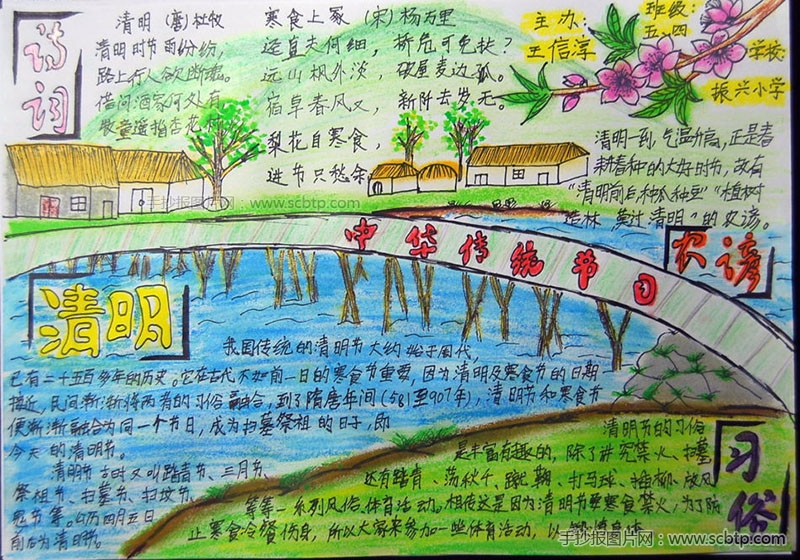 诗词
清明 (唐) 杜牧
清明时节雨纷纷,
路上行人欲断魂。
借问酒家何处有
牧童遥指杏花村
寒食上冢 (宋) 杨万里
迳直夫何细, 桥危可免扶?
远山枫外淡, 破屋麦边孤。
宿草春风又, 新阡去岁无。
梨花自寒食,
进节只愁余
主办:
王信淳
班级:
五、四
学校:
振兴小学
清明一到,气温升高,正是春
耕春种的大好时节,故有
“清明前后,种瓜种豆”“植树
造林,莫过清明”的农谚。
农谚
手抄报图片网:www.scbtp.com
中华传统节日
清明
我国传统的清明节大约始于周代,
已有二千五百多年的历史。它在古代不如前一日的寒食节重要,因为清明及寒食节的日期
接近,民间渐渐将两者的习俗融合,到了隋唐年间(581至907年),清明节和寒食节
便渐渐融合为同一个节日,成为扫墓祭祖的日子,即
今天的清明节。
清明节古时又叫踏青节、三月节、
祭祖节、扫墓节、扫坟节、
鬼节等。公历四月五日
前后为清明节。
习俗
清明节的习俗
是丰富有趣的,除了讲究禁火、扫墓
还有踏青、荡秋千、蹴鞠、打马球、插柳、放风
筝等一系列风俗体育活动。相传这是因为清明节要寒食禁火,为了防
止寒食冷餐伤身,所以大家来参加一些体育活动,以
手抄报图片网:www.scbtp.com